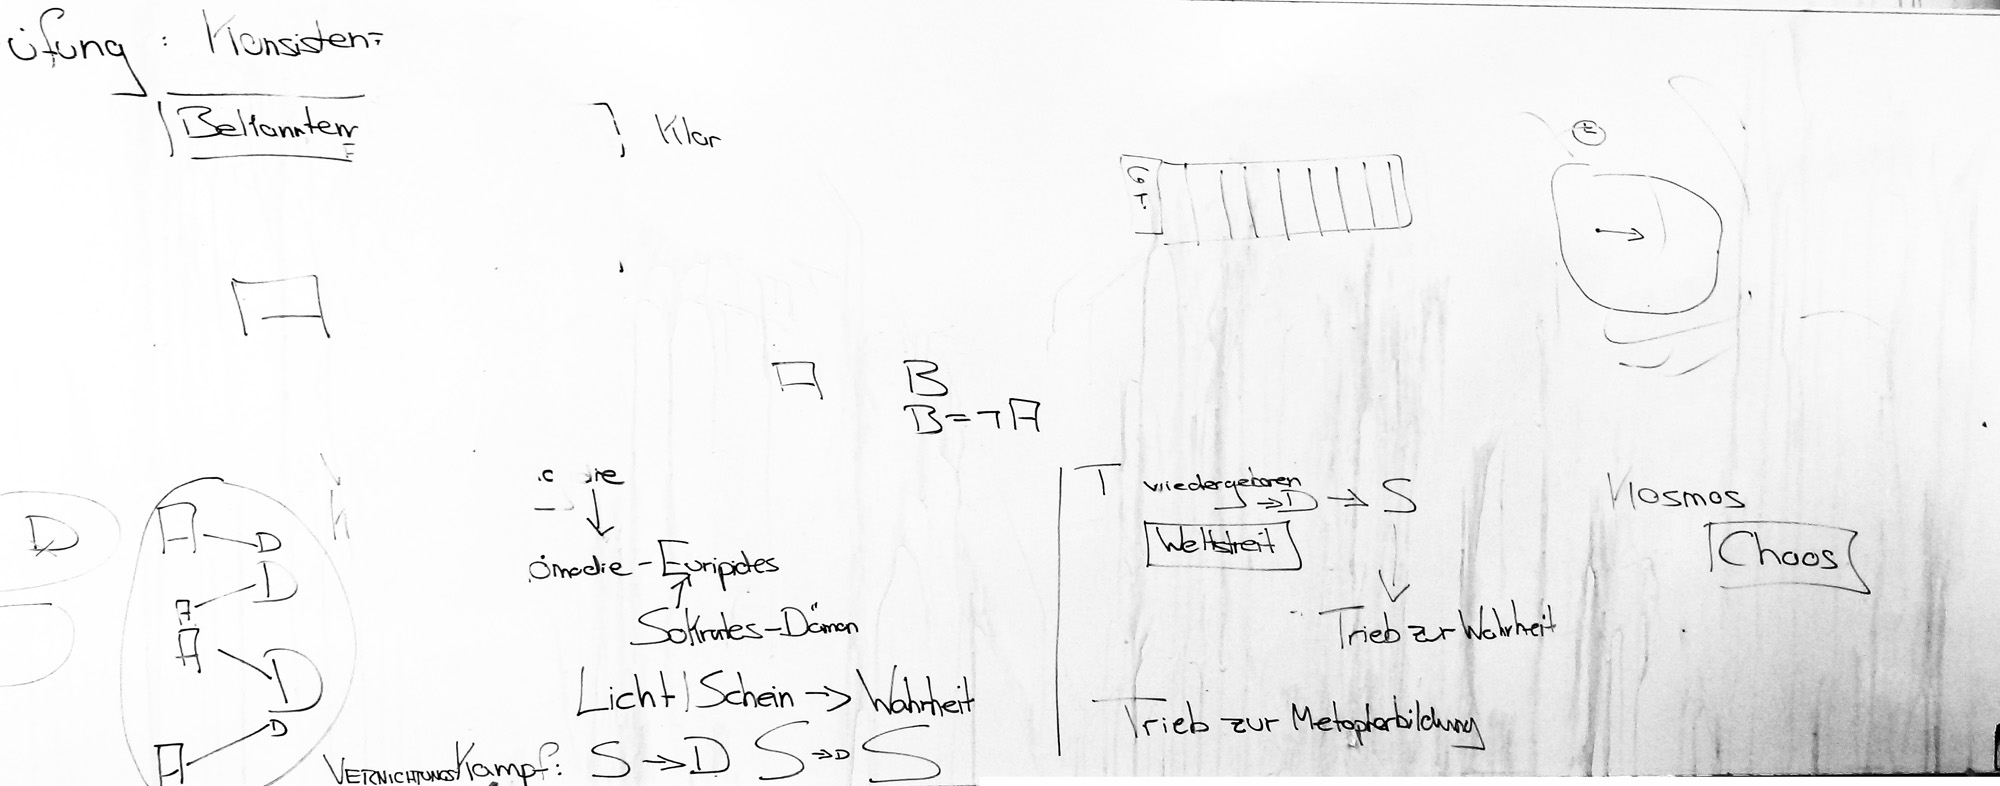 üfung : Konsistenz
Bekannten
Klar
G
T.
t
A
A B
B = ¬ A
D
A D
A D
A D
A D
.c ire
ömödie - Euripides
Sokrates - Dämon
Licht / Schein → Wahrheit
VERNICHTUNGSKampf: S → D S → D S
T wiedergeboren
⇒ D → S
Weltstreit
Trieb zur Wahrheit
Trieb zur Metapherbildung
Kosmos
Chaos